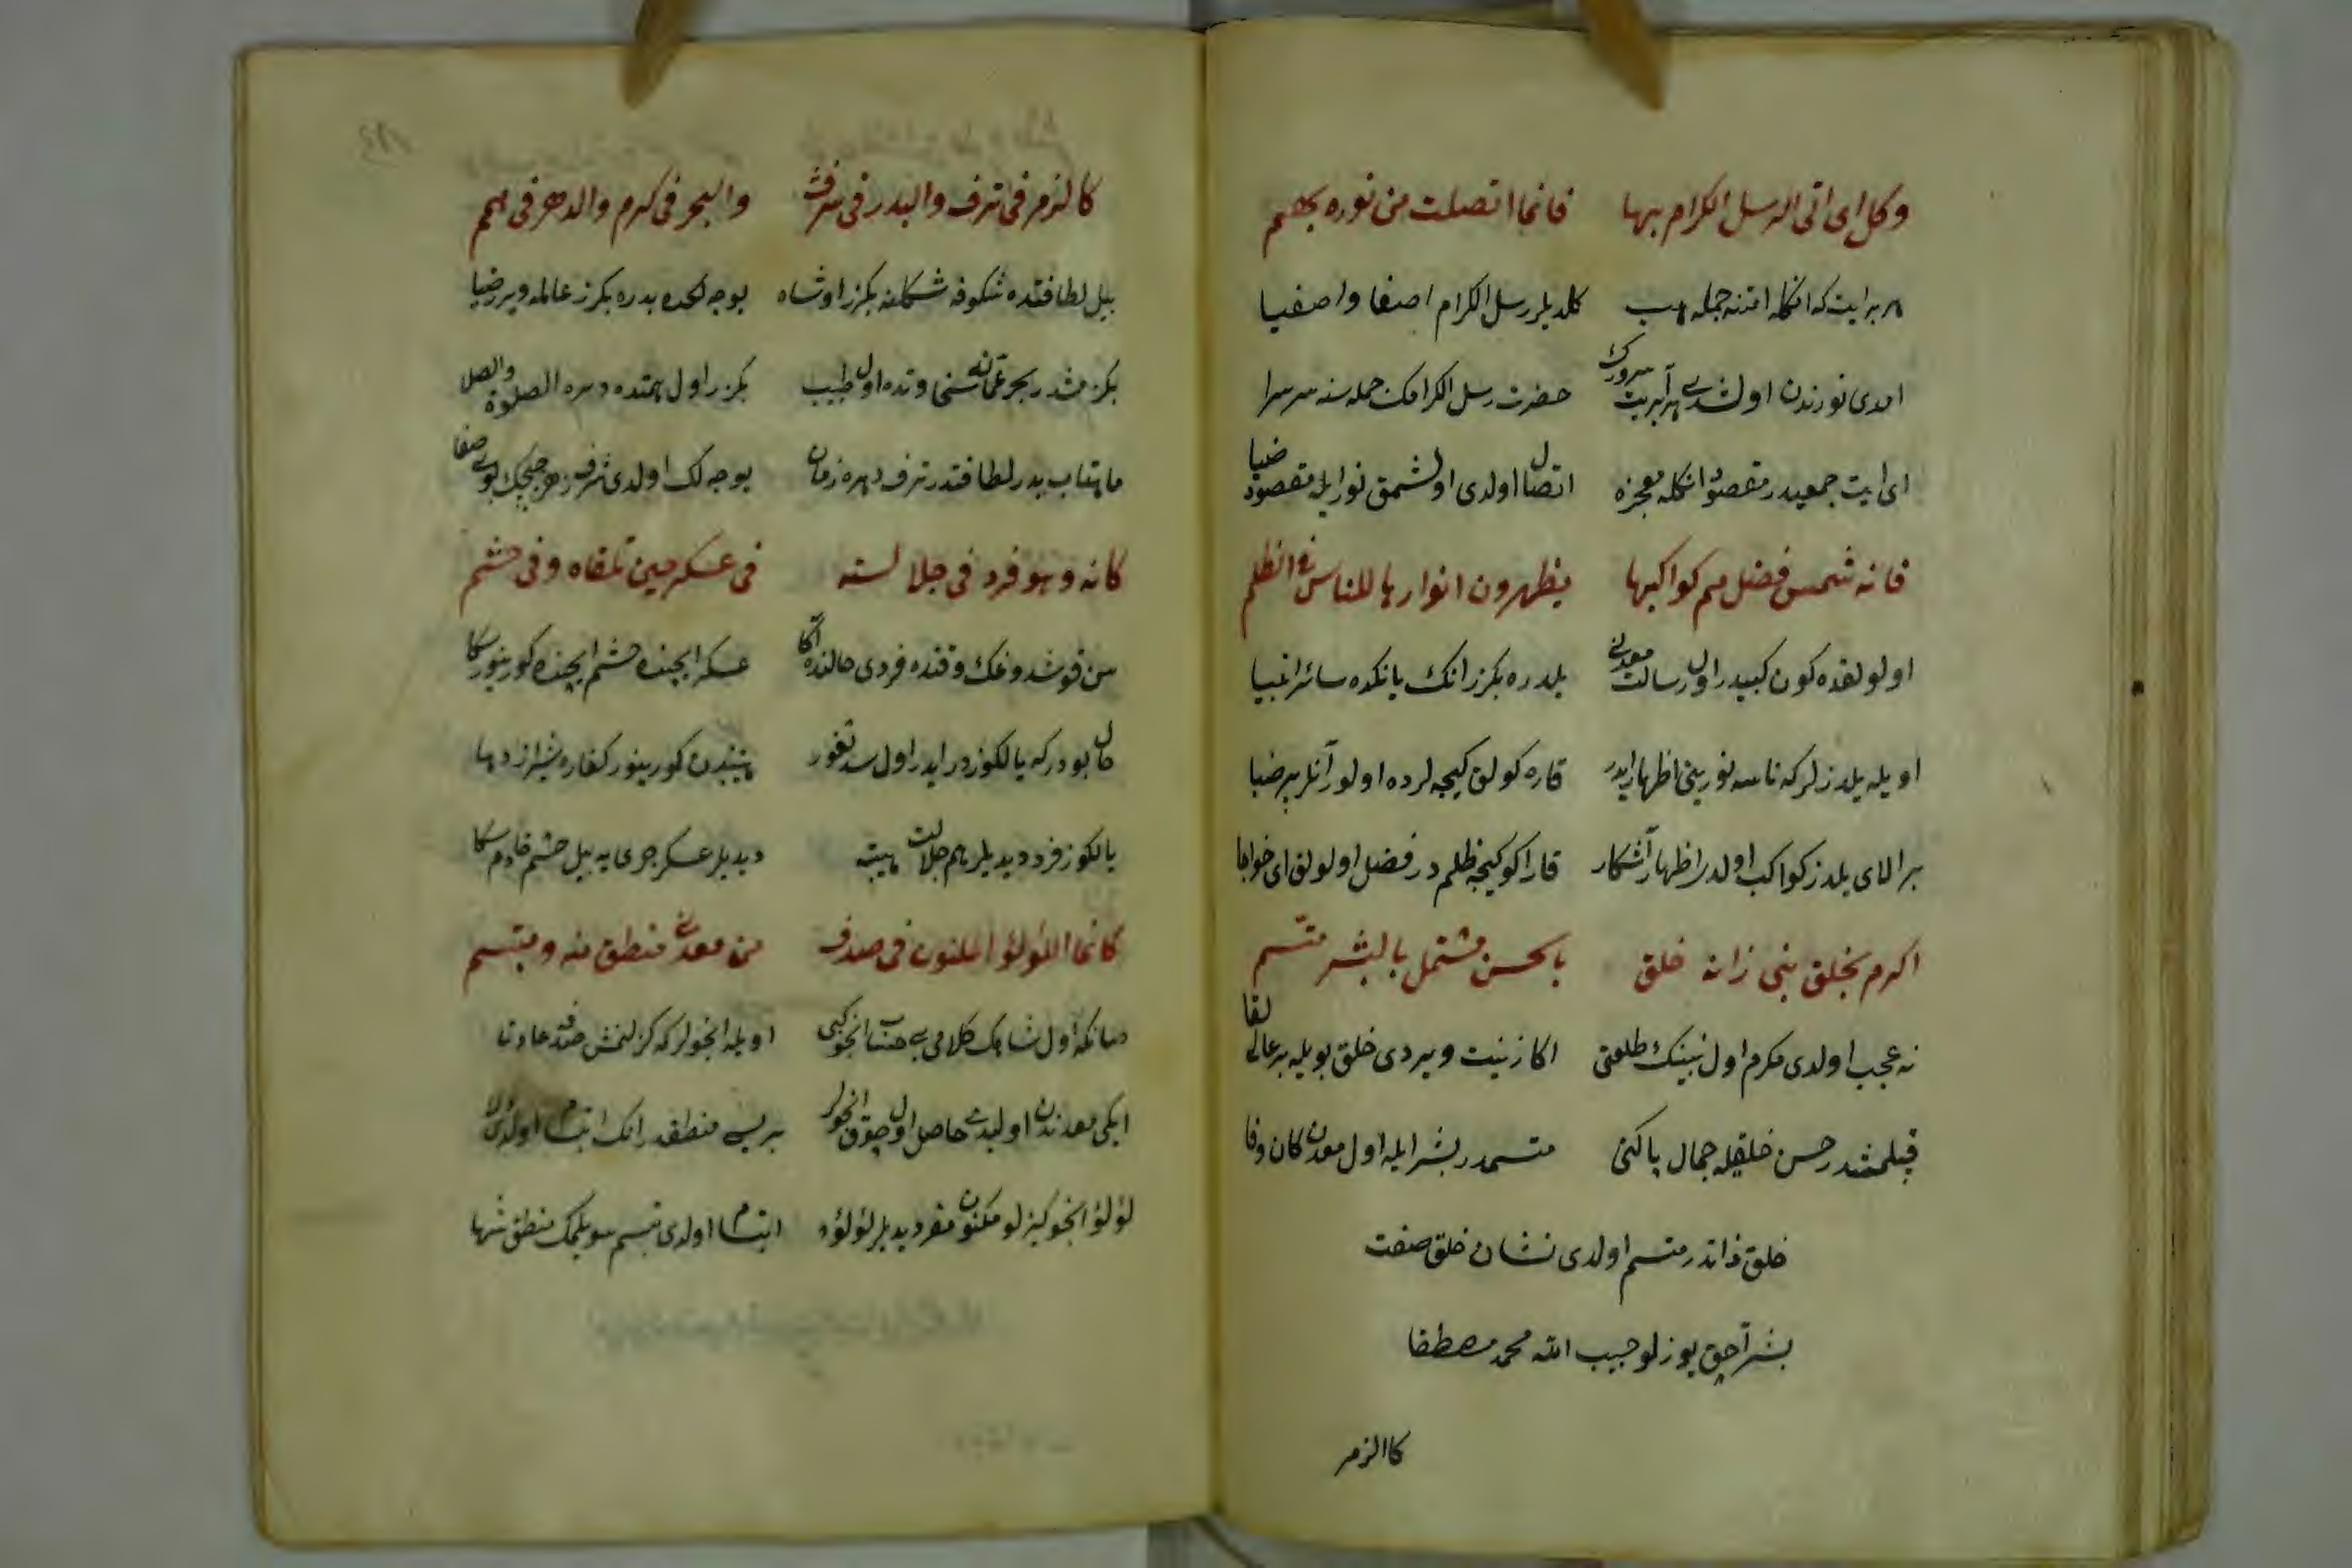 وكل اى اتى الرسل الكرام بها فانما اتصلت من نوره بهم
هر برايت كه انكله امتنه جمله هپ كلديلر رسل الكرام اصفا واصفيا
امدى نورندن اولشدى هر آيت سرورك حضرت رسل الكرامك جمله سنه سرسرا
اى ايت جمعيدر مقصود انكله معجزه اتصال اولدى اولشمق نور ايله مقصود ضيا
فانه شمس فضل هم كواكبها يظهرون انوارها للناس فى الظلم
اولولقده كون كبيدر اول رسالت معدنى يلدزه بكزر انك ياننده سائر انبيا
اويله يلدزلر كه ناسه نورينى اظهار ايدر قاره كولق كيجه لرده اولور آنلر پر ضيا
بر الاى يلدز كواكب اولدر اظهار آشكار قاراكو كيجه ظلم در فضل اولولق اى خواجا
اكرم بخلق نبى زانه خلق بالحسن مشتمل بالبشر متسم
نه عجب اولدى مكرم اول نبينك طلعتى اكا زينت ويردى خلق بويله بر عالى لقا
قپلمشدر حسن خلقيله جمال پاكنى متسمدر بشر ايله اول معدن كان وفا
خلق ذاتدر متسم اولدى نشان خلق صفت
بشر آچق يوزلو حبيب الله محمد مصطفا
كاالزهر
كالزهر فى ترف والبدر فى شرف والبحر فى كرم والدهر فى همم
بيل لطافتده شكوفه شكلنه بكزر اوشاه يوجه لكده بدره بكرز عالمه ويرر ضيا
بكزمشدر بحر عمانه سخاوتده اول طبيب بكزر اول همتده دهره الصلوة والصلا
ماهتاب بدر لطافتدر ترف دهره زمان يوجه لك اولدى شرف زهر چيچك بوى صفا
كانه وهو فرد فى جلالته فى عسكر حين تلقاه وفى حشم
سن قوشدوغك وقتده فردى حالنده اكا عسكر ايچنده حشم ايچنده كورينور سكا
حال بودر كه يالكوزدر ايدر اول سد ثغور هيبتندن كورينور كفاره شيراز دها
يالكوز فرد ديديلر هم جلالت هيبته ديديلر عسكر جرى يه بيل حشم خادم سكا
كانما اللؤلؤ المكنون فى صدف من معدنى منطق منه ومبتسم
صانكه اول شاهك كلامى بى حساب انجو كبى اويله انجولر كه كزلنمش صدفده عادتا
ايكى معدندن اوليدى حاصل اول چوق انجولر بريسى منطقدر انك ابتسام اولدى
لؤلؤ انجو كيزلو مكنون مفرد ديديلر لؤلؤه ابتسام اولدى تبسم سويلمك منطق شها